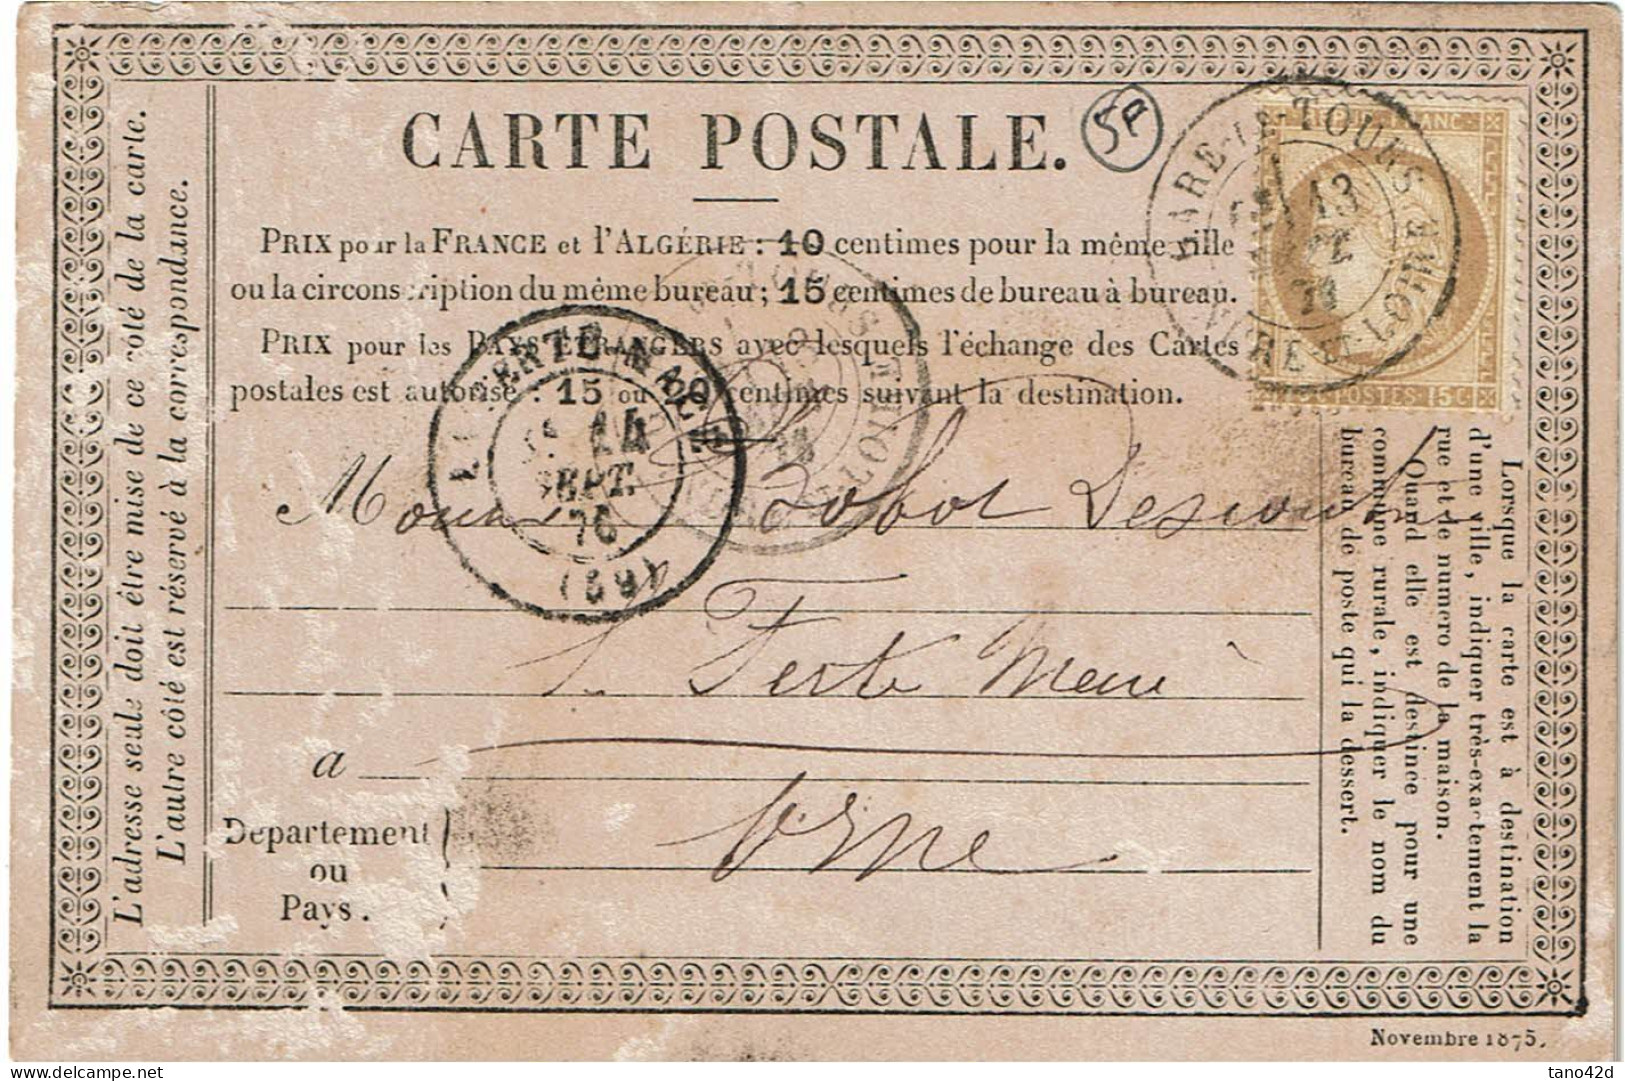 CARTE POSTALE.
5A
PRIX pour la FRANCE et l'ALGÉRIE : 10 centimes pour la même ville
ou la circonscription du même bureau ; 15 centimes de bureau à bureau.
PRIX pour les PAYS ÉTRANGERS avec lesquels l'échange des Cartes
postales est autorisé : 15 ou 20 centimes suivant la destination.
GARE-DE-TOURS
13
76
INDRE-ET-LOIRE
REPUB FRANC
POSTES 15 C
LA FERTE-MACE
14
SEPT.
76
(59)
Monsieur Bobot Descoutures
La Ferté Macé
a
Orne
Département
ou
Pays.
L'adresse seule doit être mise de ce côté de la carte.
L'autre côté est réservé à la correspondance.
Lorsque la carte est à destination
d'une ville, indiquer très-exactement la
rue et le numéro de la maison.
Quand elle est destinée pour une
commune rurale, indiquer le nom du
bureau de poste qui la dessert.
Novembre 1875.
tano42d